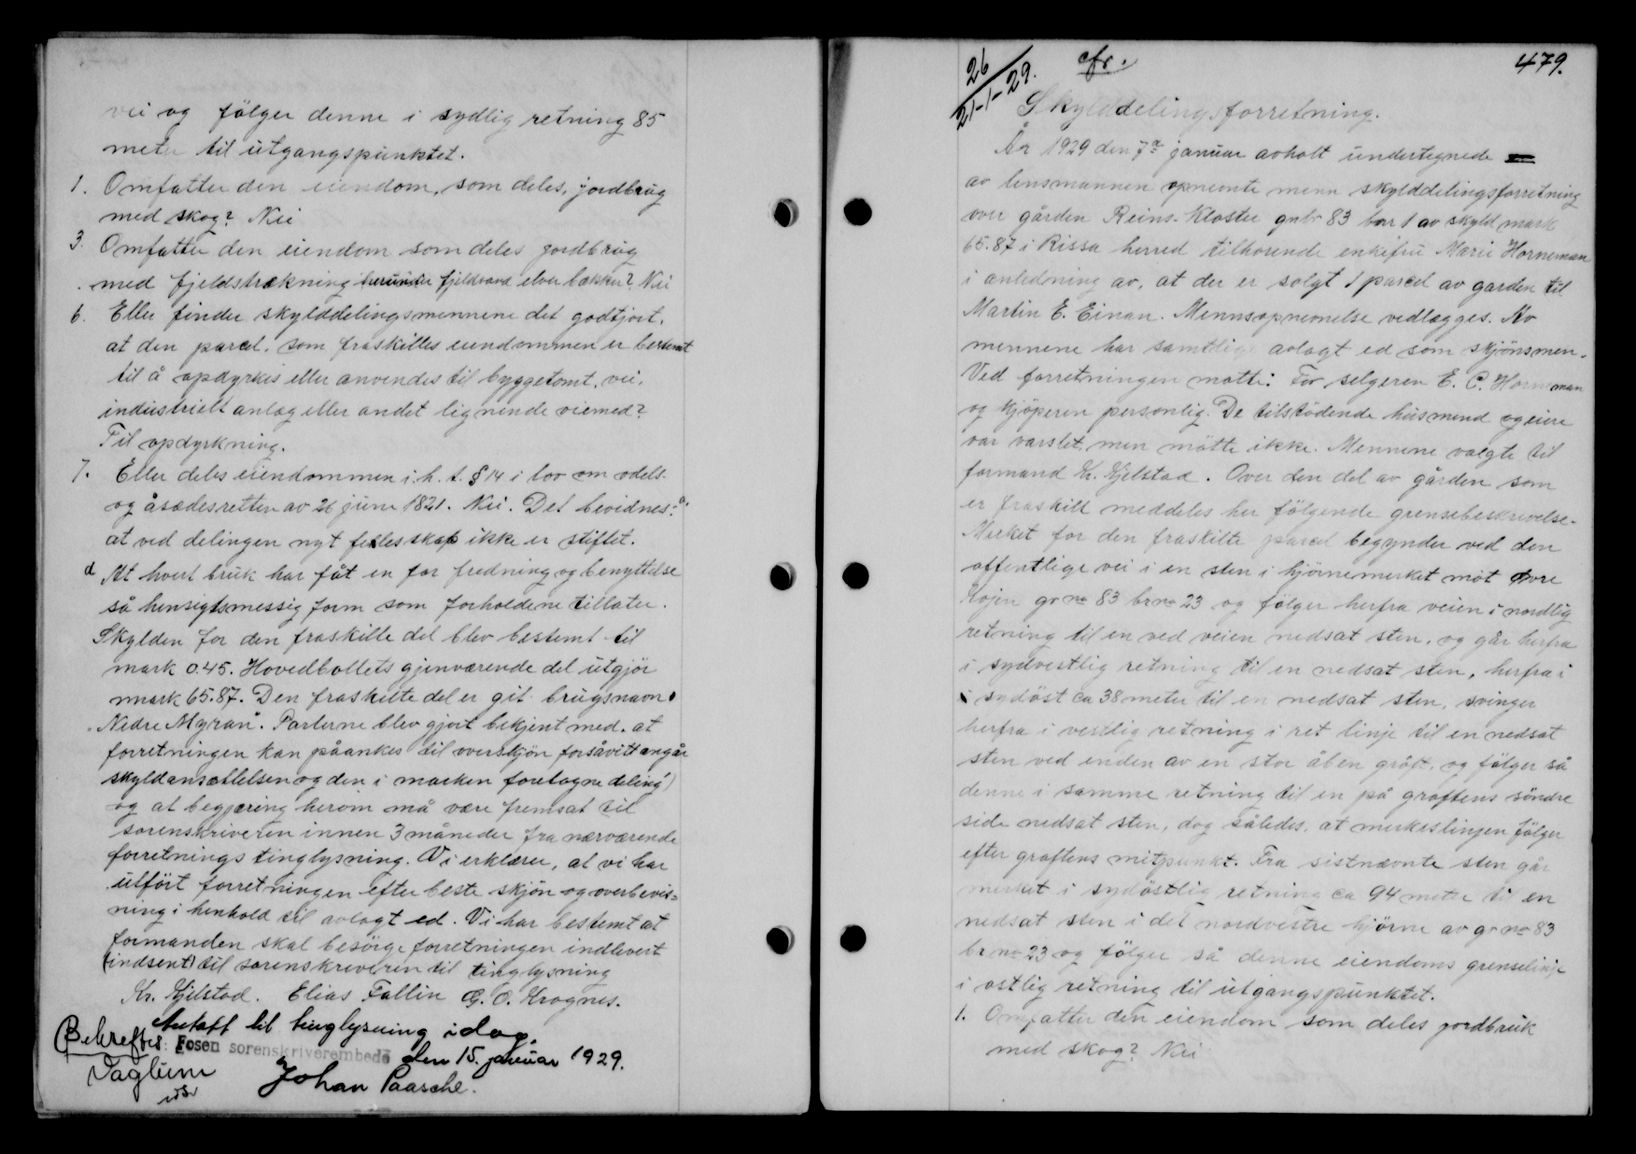 vei og følger denne i sydlig retning 85
meter til utgangspunktet.
1. Omfatter den eiendom, som deles, jordbrug
med skog? Nei
3. Omfatter den eiendom som deles jordbrug
med fjeldstrækning herunder fjeldvand elver bækker? Nei
6. Eller finder skylddelingsmennene det godtjort,
at den parcel, som fraskilles eiendommen er bestemt
til å opdyrkes eller anvendes til byggetomt, vei,
industrielt anlæg eller andet lignende øiemed?
Til opdyrkning.
7. Eller deles eiendommen i. h. t. § 14 i lov om odels-
og åsædesretten av 26 juni 1821. Nei. Det bevidnes: a.
at ved delingen nyt fellesskap ikke er stiftet.
d At hvert bruk har fåt en for fredning og benyttelse
så hensigtsmessig form som forholdene tillater.
Skylden for den fraskille del blev bestemt til
mark 0.45. Hovedbøllets gjenværende del utgjør
mark 65.87. Den fraskilte del er git brugsnavn
"Nedre Myran". Parterne blev gjort bekjent med, at
forretningen kan påankes til overskjøn forsåvitt angår
skyldansættelsen og den i marken foretagne deling)
og at begjæring herom må være fremsat til
sorenskriveren innen 3 måneder fra nærværende
forretnings tinglysning. Vi erklærer, at vi har
utført forretningen efter beste skjøn og overbevis-
ning i henhold til avlagt ed. Vi har bestemt at
formanden skal besørge forretningen indlevert
(indsent) til sorenskriveren til tinglysning
Kr. Hjelstad. Elias Fallin G. O. Krognes.
Antatt til tinglysning idag.
Bekreftes: Fosen sorenskriverembede den 15. januar 1929.
Vaglum Johan Paasche.
26
21-1-29. cfr. 479.
Skylddelingsforretning.
År 1929 den 7de januar avholt undertegnede
av lensmannen opnemte menn skylddelingsforretning
over gården Reins-Kloster gnr 83 bnr 1 av skyld mark
65.87 i Rissa herred tilhørende enkefru Marie Horneman
i anledning av, at der er solgt 1 parcel av garden til
Martin E. Einan. Mennsopnevnelse vedlægges. Av
mennene har samtlige avlagt ed som skjønsmen.
Ved forretningen møtte: For selgeren E. C. Horneman
og kjøperen personlig. De tilstødende husmend og eiere
var varslet, men møtte ikke. Mennene valgte til
formand Kr. Hjelstad. Over den del av gården som
er fraskilt meddeles her følgende grensebeskrivelse.
Merket for den fraskilte parcel begynder ved den
offentlige vei i en sten i hjørnemerket mot Øvre
gr no 83 br no 23 og følger herfra veien i nordlig
retning til en ved veien nedsat sten, og går herfra
i sydvestlig retning til en nedsat sten, herfra i
i sydøst ca 38 meter til en nedsat sten, svinger
herfra i vestlig retning i ret linje til en nedsat
sten ved enden av en stor åben grøft, og følger så
denne i samme retning til en på grøftens søndre
side nedsat sten, dog således, at merkeslinjen følger
efter grøftens mitpunkt. Fra sistnævnte sten går
merket i sydøstlig retning ca 94 meter til en
nedsat sten i det nordvestre hjørne av gr no 83
br no 23 og følger så denne eiendoms grenselinje
i østlig retning til utgangspunktet.
1. Omfatter den eiendom som deles jordbruk
med skog? Nei